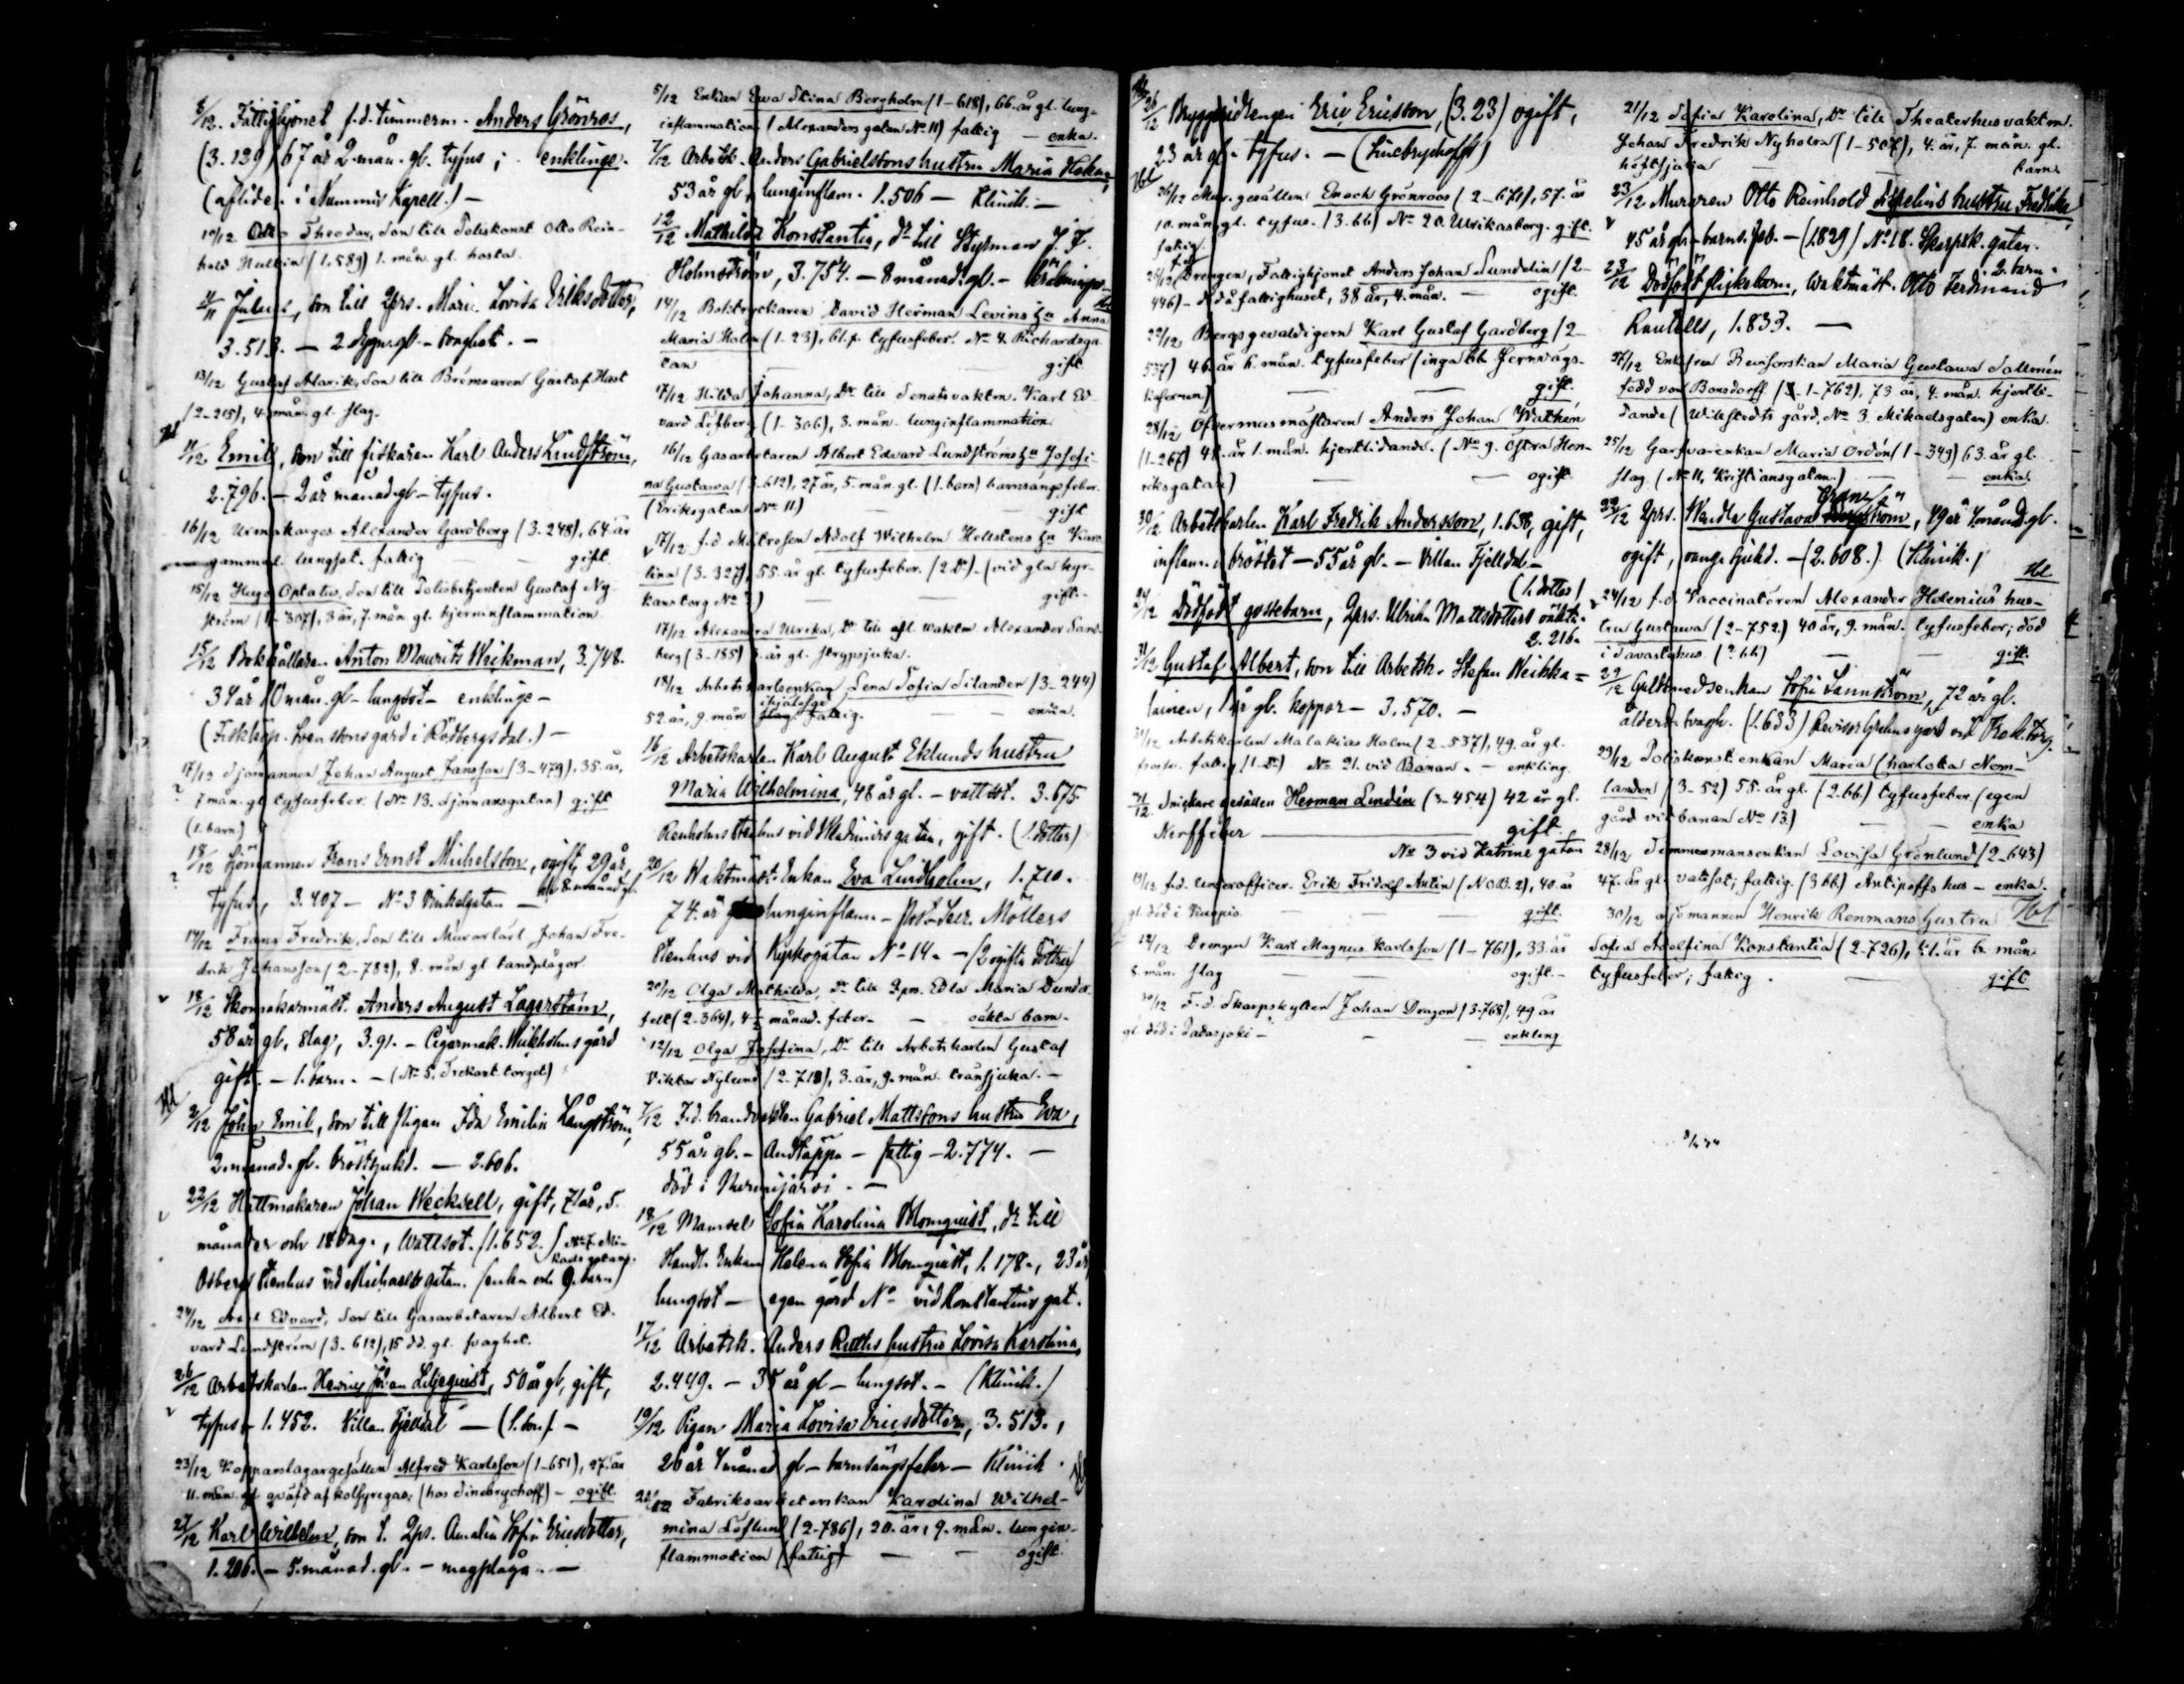 8/12. Fattighjonet f.d. timmerm. Anders Grönroos,
(3.129) 67 år 2 mån. gl. tyfus; - enkling.
(afliden i Nummis Kapell.) -
10/12 Otto Theodor, Son till Poliskonst. Otto Rein-
hold Hultin (1.589) 1. mån. gl. hosta.
Julius, son till Qprs. Mari. Lovisa Eriksdotter,
3.513. - 2 dygn. gl. -
13/12 Gustaf Alarik, Son till Bromsaren Gustaf Häst
(2-215), 4. mån. gl. slag.
11/12 Emil, son till fiskaren Karl Anders Lindström,
2.796. - 2 år månad. gl - tyfus.
16/12 Urmakarges. Alexander Gardberg (3-248), 64. år
gammal. lungsot. fattig - gift.
15/12 Hugo Optatus, Son till Polisbetjenten Gustaf Ny-
ström (1-307), 3 år, 7. mån. gl. hjerninflammation
15/12 Bokhållaren Anton Mauritz Weikman, 3.748.
34 år 10 mån. gl - lungsot - enkling -
(Fiskhöp. Svenssons gård i Rödbergsdal.) -
17/12 Sjömannen Johan August Jansson (3-479), 35. år,
? 7 mån. gl. tyfusfeber. (No 13. Sjömansgatan) gift
(1. barn)
18/12 Sjömannen Frans Ernst Michelsson, ogift, 29 år,
? och 8 månad gl.
tyfus, 3.407 - No 3 Vinkelgatan -
14/12 Frans Fredrik, Son till Murarlärl. Johan Fre-
drik Johansson (2-782), 8. mån gl tandplågor
v 18/12 Skomakarmäst. Anders August Lagerstam,
58 år gl, slag, 3.91. - Cigarrmak. Wikholms gård
gift. - 1. barn. - (No 5. Trekant. torget)
2/12 John Emil, son till pigan Ida Emilia Långström,
2. månad. gl. bröstsjukd. - 2.606.
v 22/12 Hattmakaren Johan Wecksell, gift, 71 år, 5.
månader och 18 dag., Wattsot. (1.652. (No 7. Mi-
kaelsgatan.
Osbergs Stenhus vid Michaelsgatan. (enka och 9. barn)
24/12 Axel Edvard, Son till Gasarbetaren Albert Ed-
vard Lundström (3-612), 15 dd. gl. svaghet.
26/12 Arbetskarlen Henrik Johan Liljeqvist, 50 år gl, gift,
v tyfus - 1.452. Villan Fjelldal - (1. son.) -
23/12 Kopparslagargesällen Alfred Karlsson (1-651), 27. år
11. mån. gl qväfd af kolsyregas; (hos Sinebrychoff) - ogift.
27/12 Karl Wilhelm, son t. Qprs. Amalia Sofia Ericsdotter,
1.206. - 5. månad. gl. - magplåga. -
5/12 Enkan Ewa Stina Bergholm (1-618), 66. år gl. lung-
inflammation (Alexanders gatan No 11) fattig - enka.
7/12 Arbetsk. Anders Gabrielssons hustru Maria
53 år gl, lunginflam. 1.506 - Klinik. -
12/12 Mathilda Konstantia, Dr till Styrman J. F.
Holmström, 3.754. - 8 månad. gl. -
14/12 Boktryckaren David Herman Levins Hu Anna
Maria Holm (1-23), 61. år tyfusfeber. No 4. Richardsga-
tan - gift
17/12 Hilda Johanna, Dr till Senatsvaktm. Karl Ed-
vard Löfberg (1-306), 3. mån. lunginflammation
16/12 Gasarbetaren Albert Edvard Lundströms Hu Josefi-
na Gustawa (3-612), 27 år, 5. mån. gl. (1. barn) barnsängsfeber.
(Eriksgatan No 11) - gift
v 17/12 f.d Matrosen Adolf Wilhelm Hellstens Hu Karo-
lina (3-327), 55. år gl. tyfusfeber. (2 Dr) - (vid gla kyr-
kans torg No ) - gift. -
17/12 Alexandra Ulrika, Dr till afl. waktm Alexander Sand-
berg (3-185) år gl. strypsjuka.
18/12 Arbetskarlsenkan Lena Sofia Silander (3-244)
52. år, 9. mån ihjälslag. fattig. - enka.
16/12 Arbetskarlen Karl August Eklunds hustru
Maria Wilhelmina, 48 år gl. - vattsot. 3.675
Renholms Stenhus vid Wladimirsgatan, gift. (1. dotter)
20/12 Waktmäst. Enkan Eva Lindholm, 1.710.
74. år gl lunginflam - Post-Secr. Möllers
Stenhus vid Kyrkogatan No 14. - (2 gifta döttrar)
20/12 Olga Mathilda, Dr till Qpn. Edla Maria Dunder-
felt (2-364), 4½ månad. feber. - oäkta barn.
12/12 Olga Josefina, Dr till Arbetskarlen Gustaf
Viktor Nylund (2-718), 3. år, 9. mån. tränsjuka. -
7/12 F.d. brandvakten Gabriel Mattssons hustru Eva,
55 år gl. - Andtäppa - fattig - 2.774. -
död i Nurmijärvi. -
18/12 Mamsell Sofia Karolina Blomqvist, Dr till
Handl. Enkan Helena Sofia Blomqvist, 1.178., 23 år
lungsot - egen gård No vid Konstantins gat.
17/12 Arbetsk. Anders Ruths hustru Lovisa Karolina,
2.449. - 35 år gl - lungsot. - (Klinik.)
19/12 Pigan Maria Lovisa Ericsdotter, 3.513.,
26 år 4 månad gl - barnsängsfeber - Klinik.
26/12 Fabriksarbeterskan Karolina Wilhel-
mina Löflund (2-786), 20. år, 9. mån. lungin-
flammation (fattig) - ogift.
26/12 Bryggeridrengen Eric Ericsson, (3.23) ogift,
23 år gl. tyfus. - (Sinebrychoff)
26/12 Mur. gesällen Enoch Grönroos (2-671), 57. år
10. mån. gl. tyfus. (3. bb) No 20. Ulrikasborg. gift.
fattig.
24/12 f.d. Drengen, Fattighjonet Anders Johan Lundelin (2-
446) - d. då fattighuset, 38 år, 4. mån. - ogift.
22/12 Bergsgevaldigern Karl Gustaf Gardberg (2-
537) 46. år 6. mån. tyfusfeber (inga bb Jernvägs-
- gift.
28/12 Öfvermusmästaren Anders Johan Wathén
(1-267) 48. år 1. mån. hjertlidande. (No 9. Östra Hen-
riksgatan) - ogift
30/12 Arbetskarlen Karl Fredrik Andersson, 1.638, gift,
inflam. i bröstet - 55 år gl. - Villan Fjelldal -
(1. dotter)
24/12 Dödfödt gossebarn, Qprs. Ulrika Mattsdotters oäkta.
2.216.
31/12 Gustaf Albert, son till Arbetsk. Stefan Weikka=
lainen, 1 år gl. koppor - 3.570. -
31/12 Arbetskarlen Malakias Holm (2-537), 49. år gl.
frossa. fattig (1. Dr) No 21. vid Banan. - enkling.
31/12. Snickare gesällen Herman Lindén (3-454) 42 år gl.
Nerffeber - gift.
No 3 vid Katrine gatan
19/12 f.d. Underofficer. Erik Fridolf Antin (NOB. 2), 40. år
gl. död i Kuopio. - gift.
12/12 Drengen Karl Magnus Karlsson (1-761), 33. år
8. mån. slag - ogift. -
30/12 F.d. Skarpskytten Johan Dragon (3-768), 49 år
gl. död i Padasjoki - - enkling
21/12 Sofia Karolina, Dr till Theaterhusvaktm.
Johan Fredrik Nyholm (1-507), 4. år, 7. mån. gl.
höftsjuka - barn.
23/12 Muraren Otto Reinhold hustru Fredrika,
v 45 år gl. - barns. feb. - (1.829) No 18. Skarpsk. gatan.
2. barn.
23/12 Dödfödt flickebarn, Waktmäst. Otto Ferdinand
Rautells, 1.833. -
27/12 Enkefru Revisorskan Maria Gustawa Sallmén
född von Bonsdorff (1-762), 73 år, 4. mån. hjertli-
dande (Wilkstedts gård, No 3. Mikaelsgatan) enka.
25/12 Garfvarenkan Maria Ordén (1-349) 63. år gl.
slag. (No 11, Kristiansgatan.) - enka.
22/12 Qprs. Wendla Gustava Granström, 49 år 4 månd. gl.
ogift, sjukd. - (2.608.) (Klinik.)
v 24/12 f.d. Vaccinatören Alexander Helenius' hus-
tru Gustawa (2-752) 40 år, 9. mån. tyfusfeber; död
i Tavastehus. (? bb) - gift.
29/12 Guldsmedsenkan Sofia Tannström, 72 år gl.
ålderd. svagh. (1.633)
29/12 Poliskonst. enkan Maria Charlotta Nom-
landen (3-52) 55. år gl. (2. bb) tyfusfeber. (egen
gård vid banan No 13) - enka
28/12 Timmermansenkan Lovisa Grönlund (2-643)
47. år gl. vattsot; fattig. (3 bb) Antipoffs hus - enka.
30/12 Sjömannen Henrik Renmans hustru
Sofia Adolfina Konstantia (2-726), 41. år 6. mån
tyfusfeber; fattig. - gift